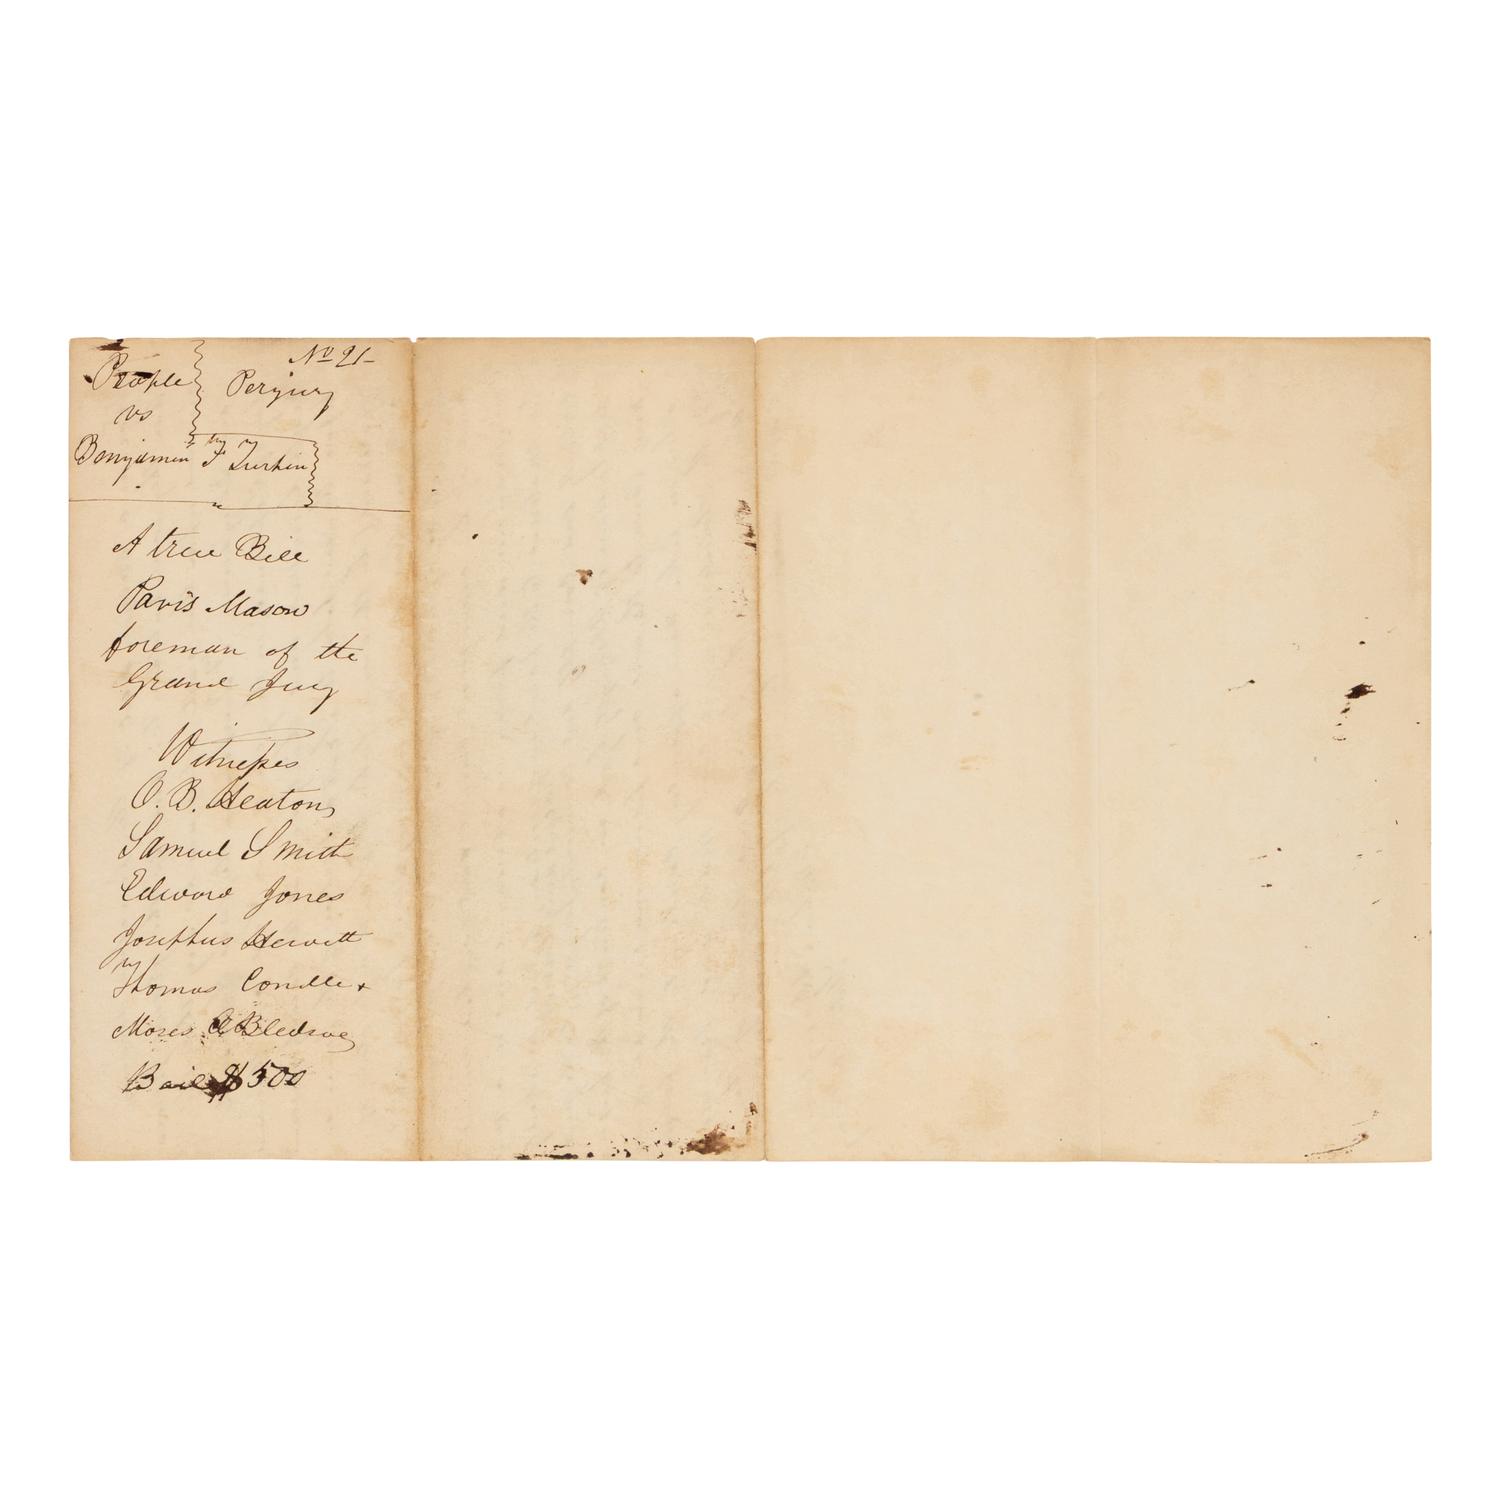 No 21
People
Perjury
vs
Benjamin F Turkin
A true Bill
Pavis Mason
foreman of the
Grand Jury
Witnesses
O. B. Heaton,
Samuel Smith
Edward Jones
Josephus Hewitt
Thomas Condle &
Moses Bledsoe
Bail $500